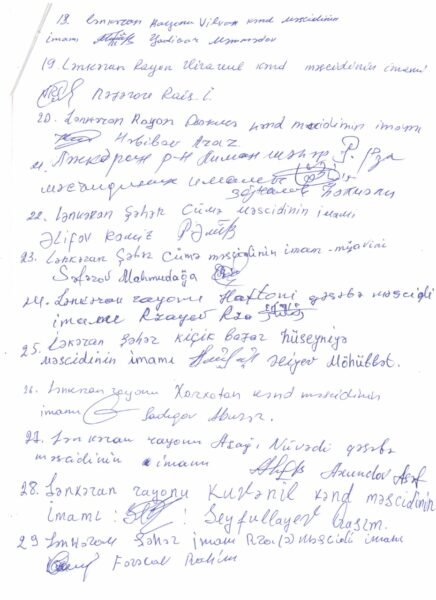 18. Lənkəran Rayonu Vilvan kənd məscidinin
imamı Yadigar Məmmədov
19 Lənkəran Rayon kənd məscidinin imamı
Rais İ.
20. Lənkəran Rayon kənd məscidinin imamı
Həbibov Araz
21. Лəнкəран р-н шəһəр Рза
мəсҹидинин имамы
22. Lənkəran Şəhər Cümə məscidinin imamı
Əlifov Ramiz
23. Lənkəran Şəhər Cümə məscidinin imam-müavini
Səfərov Mahmudağa
24. Lənkəran rayonu Haftoni qəsəbə məscidi
imamı Rzayev Rza
25. Lənkəran şəhər kiçik bazar Hüseyniyə
məscidinin imamı Əliyev Möhübbət.
26. Lənkəran rayonu Xarxatan kənd məscidinin
imamı Sadıqov Abuzər.
27. Lənkəran rayonu Aşağı Nüvədi qəsəbə
məscidinin imamı Axundov
28. Lənkəran rayonu kənd məscidinin
imamı: Seyfullayev
29 Lənkəran Şəhər imam Rza (ə) məscidi imamı
Rəhim